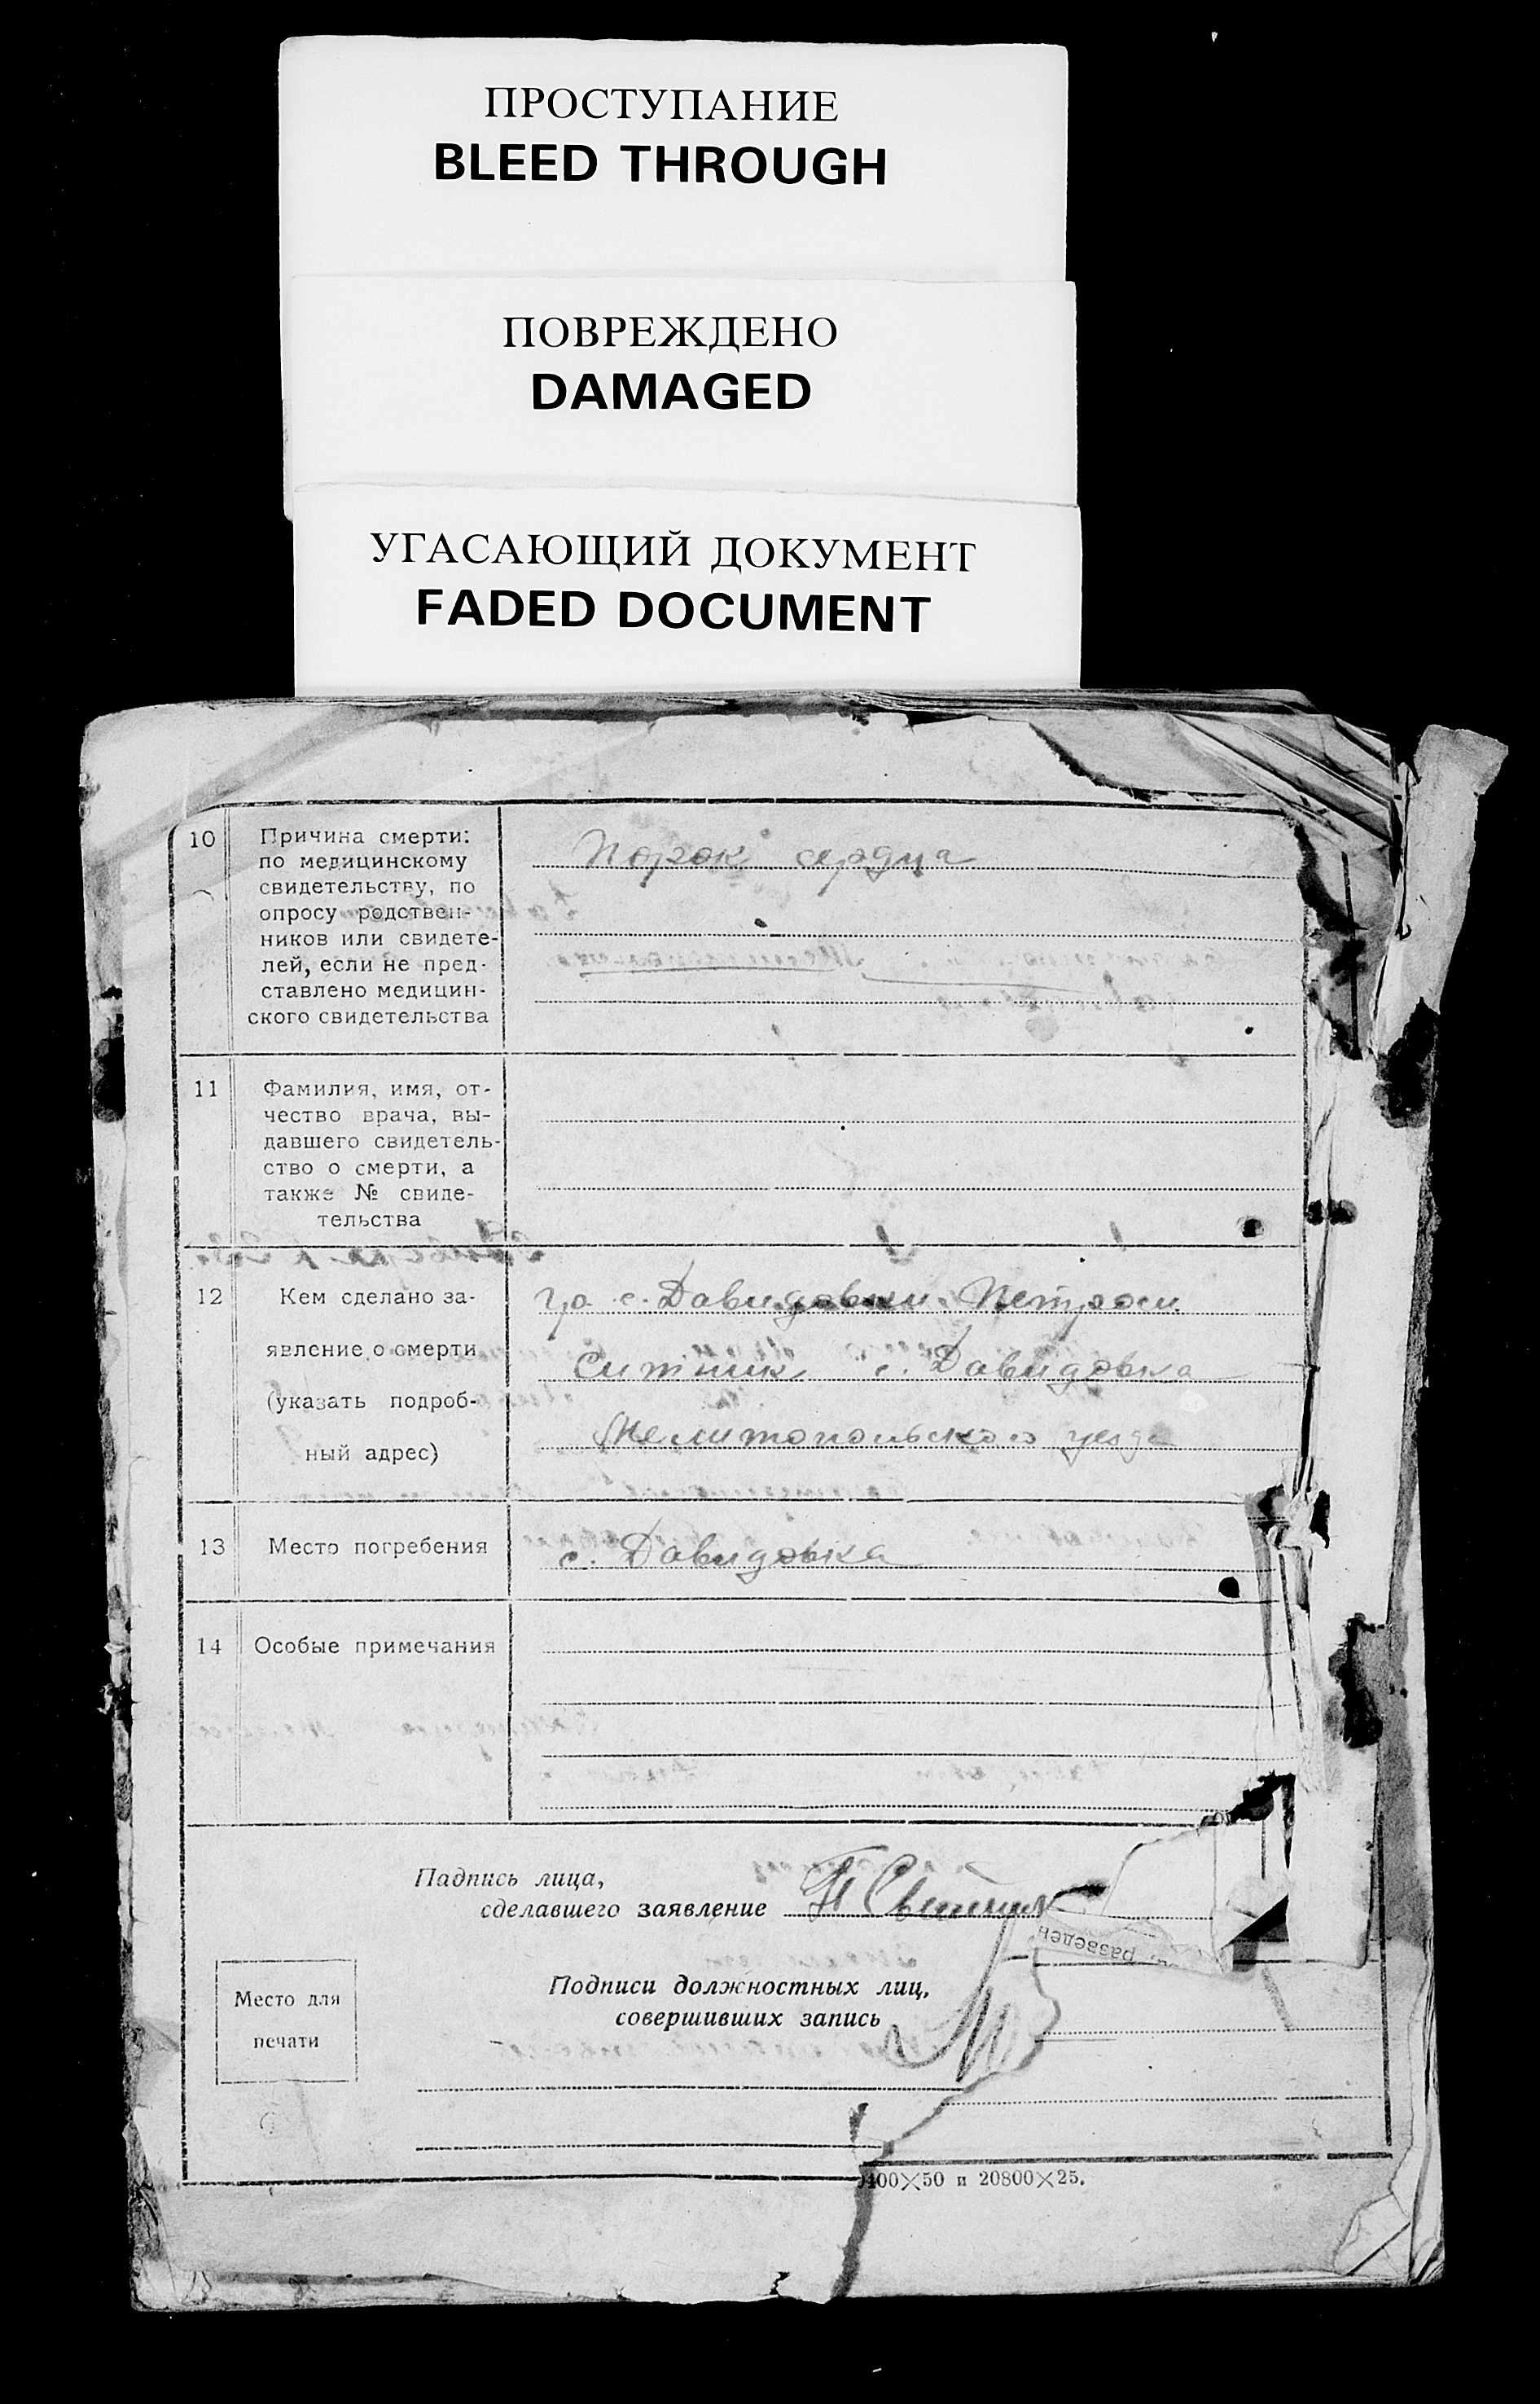 ПРОСТУПАНИЕ
BLEED THROUGH
ПОВРЕЖДЕНО
DAMAGED
УГАСАЮЩИЙ ДОКУМЕНТ
FADED DOCUMENT
10
Причина смерти:
по медицинскому
свидетельству, по
опросу родствен-
ников или свидете-
лей, если не пред-
ставлено медицин-
ского свидетельства
Порок сердца
11
Фамилия, имя, от-
чество врача, вы-
давшего свидетель-
ство о смерти, а
также № свиде-
тельства
12
Кем сделано за-
явление о смерти
(указать подроб-
ный адрес)
гр. с. Давидовки
Ситник с. Давидовка
Мелитопольского уезда
13
Место погребения
с. Давидовка
14
Особые примечания
Падпись лица,
сделавшего заявление
разведен
Подписи должностных лиц,
совершивших запись
Место для
печати
400×50 и 20800×25.